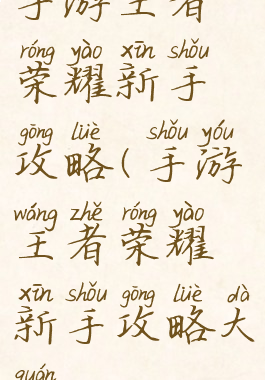 手游王者
róng yào xīn shǒu
荣耀新手
gōng lüè shǒu yóu
攻略(手游
wáng zhě róng yào
王者荣耀
xīn shǒu gōng lüè dà
新手攻略大
quán